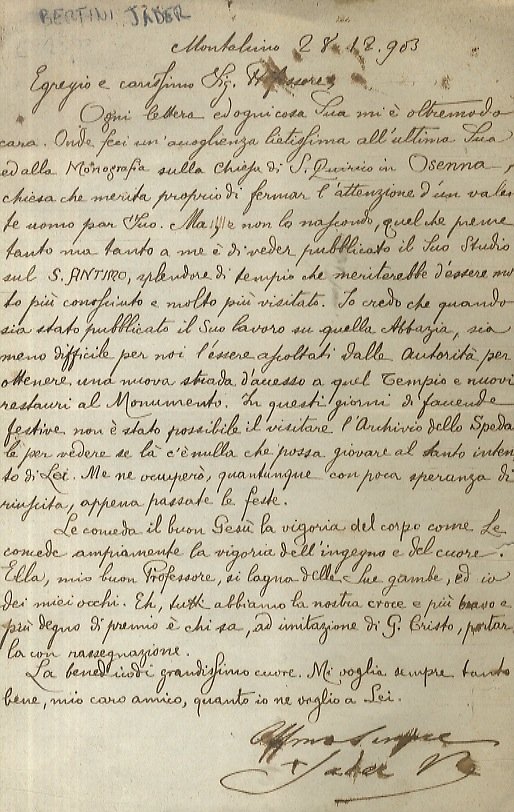 BERTINI JADER
Montalcino 28.12.903
Egregio e carissimo Sig. Professore,
Ogni lettera ed ogni cosa Sua mi è oltremodo
cara. Onde feci un'accoglienza lietissima all'ultima Sua
ed alla Monografia sulla Chiesa di S. Quirico in Osenna,
chiesa che merita proprio di fermar l'attenzione d'un valen
te uomo par Suo. Ma non lo nascondo, quel che preme
tanto ma tanto a me è di veder pubblicato il Suo Studio
sul S. ANTIMO, splendore di tempio che meriterebbe d'essere mol
to più conosciuto e molto più visitato. Io credo che quando
sia stato pubblicato il Suo lavoro su quella Abbazia, sia
meno difficile per noi l'essere ascoltati dalle Autorità per
ottenere, una nuova strada d'accesso a quel Tempio e nuovi
restauri al Monumento. In questi giorni di faccende
festive non è stato possibile il visitare l'Archivio dello Speda
le per vedere se là c'è nulla che possa giovare al santo inten
to di Lei. Me ne occuperò, quantunque con poca speranza di
riuscita, appena passate le feste.
Le conceda il buon Gesù la vigoria del corpo come Le
concede ampiamente la vigoria dell'ingegno e del cuore.
Ella, mio buon Professore, si lagna delle Sue gambe, ed io
dei miei occhi. Eh, tutti abbiamo la nostra croce e più bravo e
più degno di premio è chi sa, ad imitazione di G. Cristo, portar
la con rassegnazione.
La benedico di grandissimo cuore. Mi voglia sempre tanto
bene, mio caro amico, quanto io ne voglio a Lei.
Affmo sempre
+ Jader